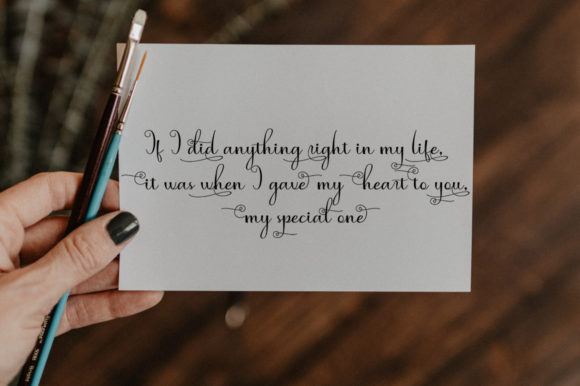 If I did anything right in my life,
it was when I gave my heart to you,
my special one